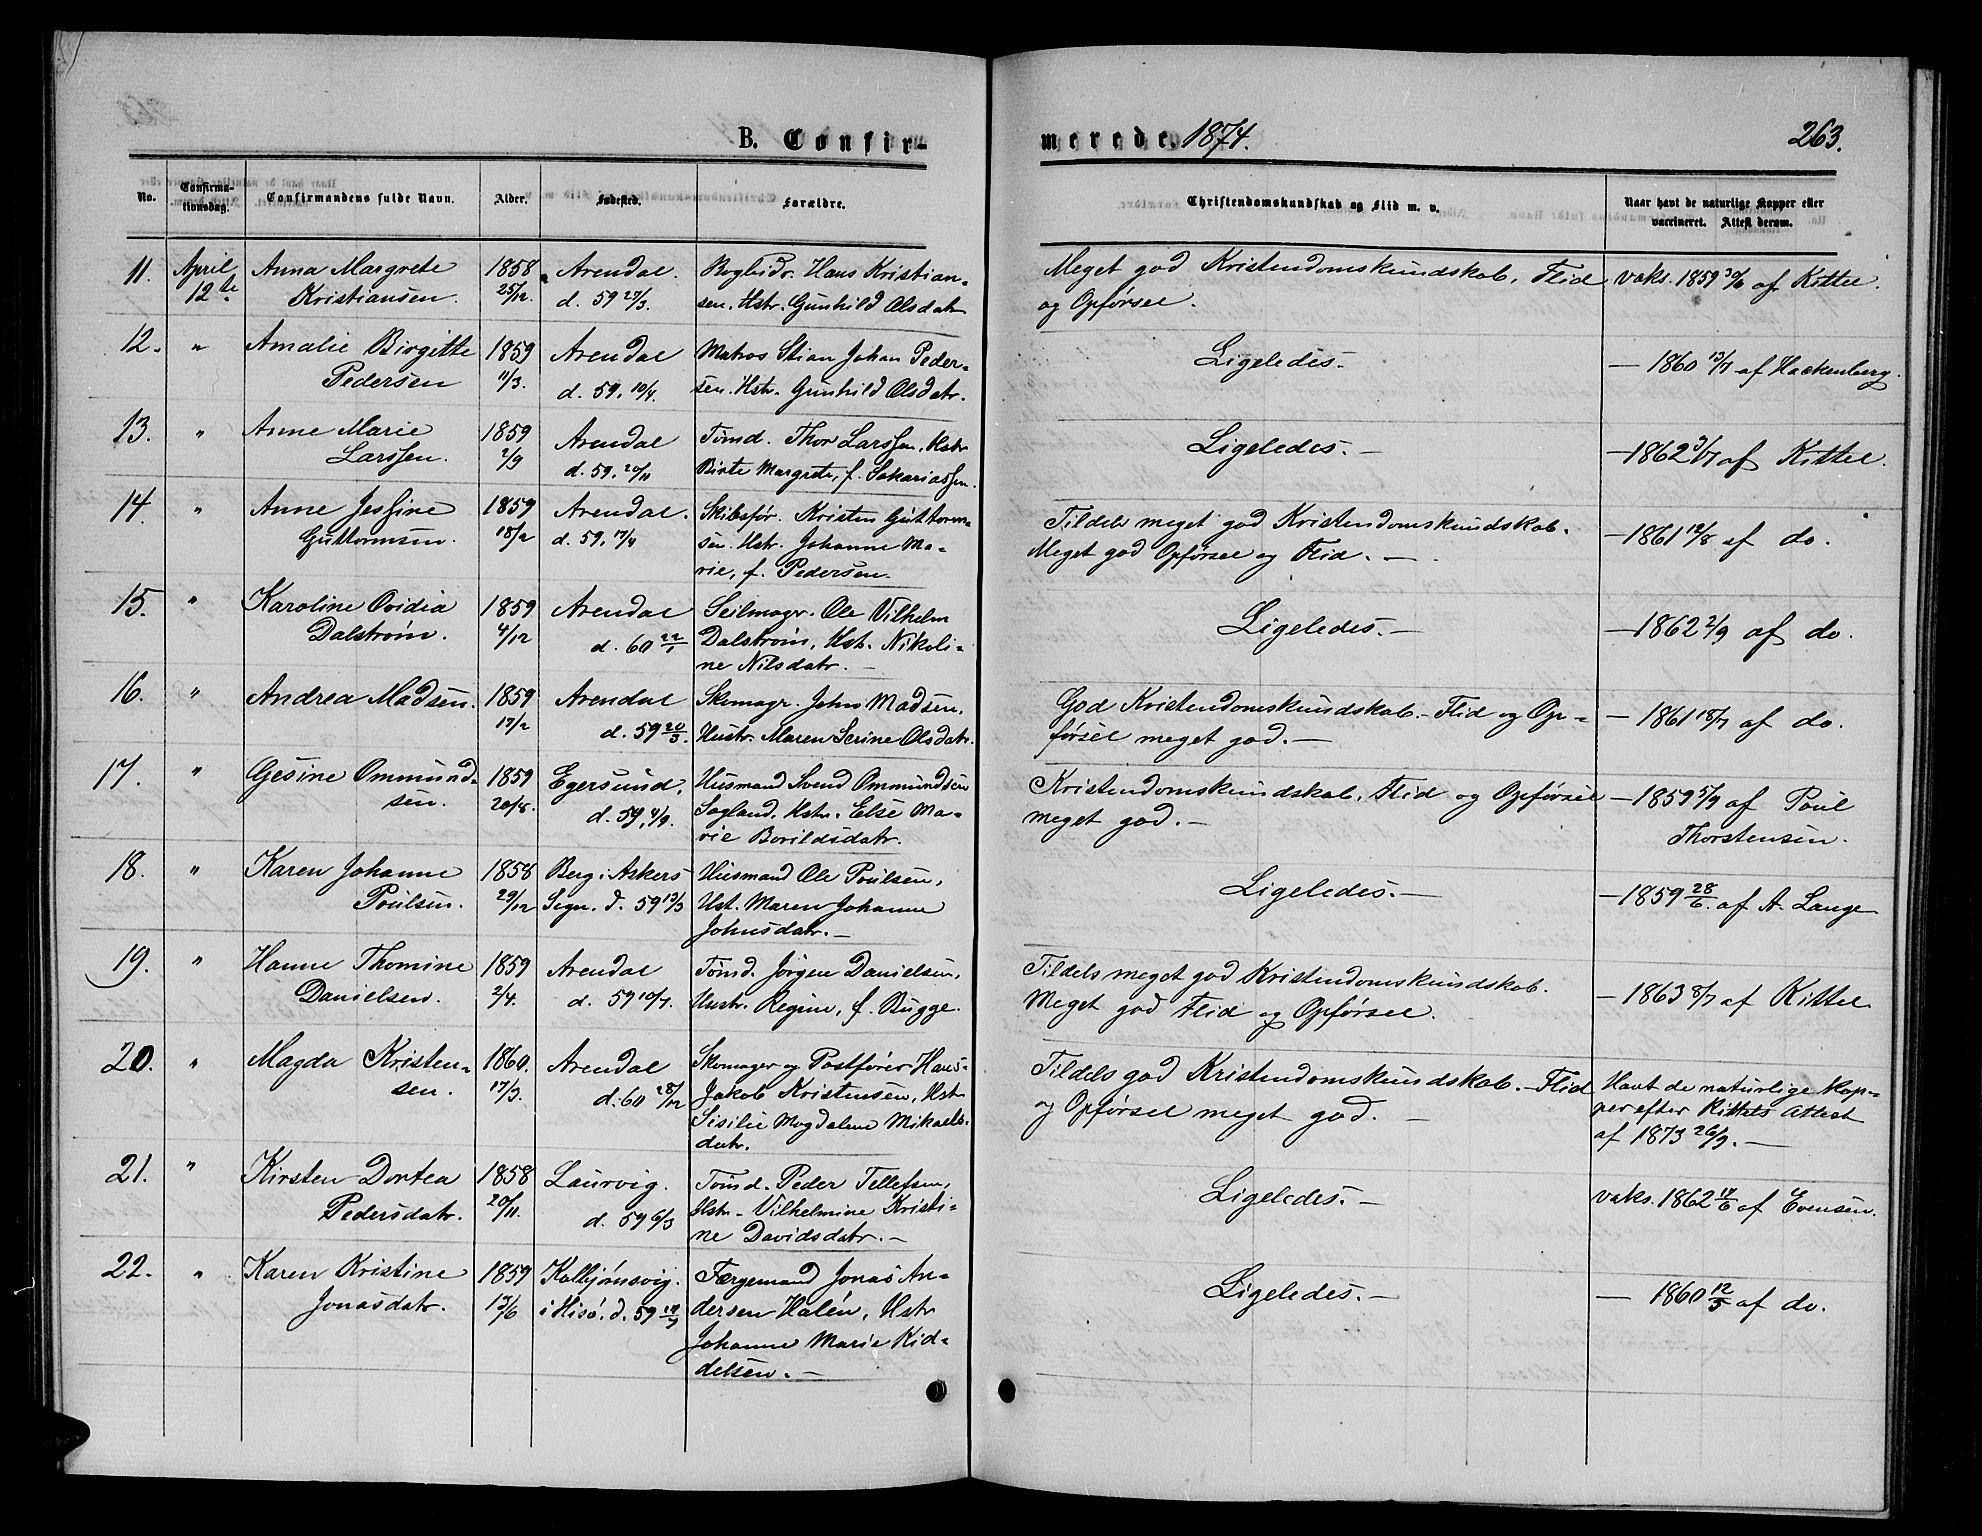 B. Confir-
merede 1874.
263.
No.
Confirma-
tionsdag.
Confirmandens fulde Navn.
Alder.
Fødested.
Forældre.
Christendomskundskab og Flid m. v.
Naar havt de naturlige Kopper eller
vaccineret. Attest derom.
11. April Anna Margrete 1858 Arendal. Hans Kristian-
12te Kristiansen. 25/12. d. 59 27/3. sen. Hstr. Gunhild Olsdatr
Meget god Kristendomskundskab, Flid vaks. 1859 30/6 af Kittel.
og Opførsel.
12. " Amalie Birgitte 1859 Arendal Matros Stian Johan Peder-
Pedersen 11/3. d. 59, 10/4. sen. Hstr. Gunhild Olsdatr.
Ligeledes. — 1860 13/7 af Hackenberg.
13. " Anne Marie 1859 Arendal Tømd. Thor Larssen, Hstr
Larssen. 2/9 d. 59, 20/11 Birte Margrete, f. Sakariassen.
Ligeledes. — — 1862 3/7 af Kittel.
14. " Anne Jessine 1859 Arendal. Skibsfør. Kristen Guttorm-
Guttormsen. 18/2 d. 59, 17/4 sen. Hstr. Johanne Ma-
rie, f. Pedersen.
Tildels meget god Kristendomskundskab.
Meget god Opførsel og Flid. — — 1861 12/8 af do.
15. " Karoline Ovidia 1859 Arendal Seilmagr. Ole Vilhelm
Dalstrøm. 4/12 d. 60 22/1 Dalstrøm, Hstr. Nikoli-
ne Nilsdatr. —
Ligeledes. — — 1862 2/9 af do.
16. " Andrea Madsen. 1859 Arendal Skomagr. John Madsen,
17/2 d. 59 20/3. Hustr. Maren Serine Olsdatr.
God Kristendomskundskab. - Flid og Op-
førsel meget god. — — 1861 18/7 af do.
17. " Gesine Ommund- 1859 Egersund, Husmand Svend Ommundsen
sen. 20/8. d. 59, 4/9. Sogland, Hstr. Else Ma-
rie Borildsdatr.
Kristendomskundskab, Flid og Opførsel — 1859 5/9 af Poul
meget god. — Thorstensen.
18. " Karen Johanne 1858 Berg i Askers Husmand Ole Poulsen,
Poulsen. 29/12 Sogn. d. 59 13/3 Hst. Maren Johanne
Johnsdatr. —
Ligeledes. — — 1859 28/6. af A. Lange
19. " Hanne Thomine 1859 Arendal Tømd. Jørgen Danielsen,
Danielsen. 2/4. d. 59 10/7. Hustr. Regine, f. Bugge.
Tildels meget god Kristendomskundskab.
Meget god Flid og Opførsel. — 1863 8/7 af Kittel
20. " Magda Kristen- 1860. Arendal Skomager og Postfører Hans
sen. 17/3. d. 60 28/12 Jakob Kristensen, Hstr
Sisilie Magdalene Mikaels-
datr.
Tildels god Kristendomskundskab. - Flid Havt de naturlige Kop-
og Opførsel meget god. — per efter Kittels Attest
af 1873 26/9. —
21. " Kirsten Dortea 1858 Laurvig. Tømd. Peder Tellefsen,
Pedersdatr. 20/11. d. 59 6/3 Hstr. Vilhelmine Kristi-
ne Davidsdatr. —
Ligeledes. — vaks. 1862 17/6 af Evensen.
22. " Karen Kristine 1859 Kolbjørnsvig. Færgemand Jonas An-
Jonasdatr. 13/6 i Hisø. d. 59 dersen Halén, Hstr
Johanne Marie Kid-
delsen. —
Ligeledes. — — 1860 12/5 af do.